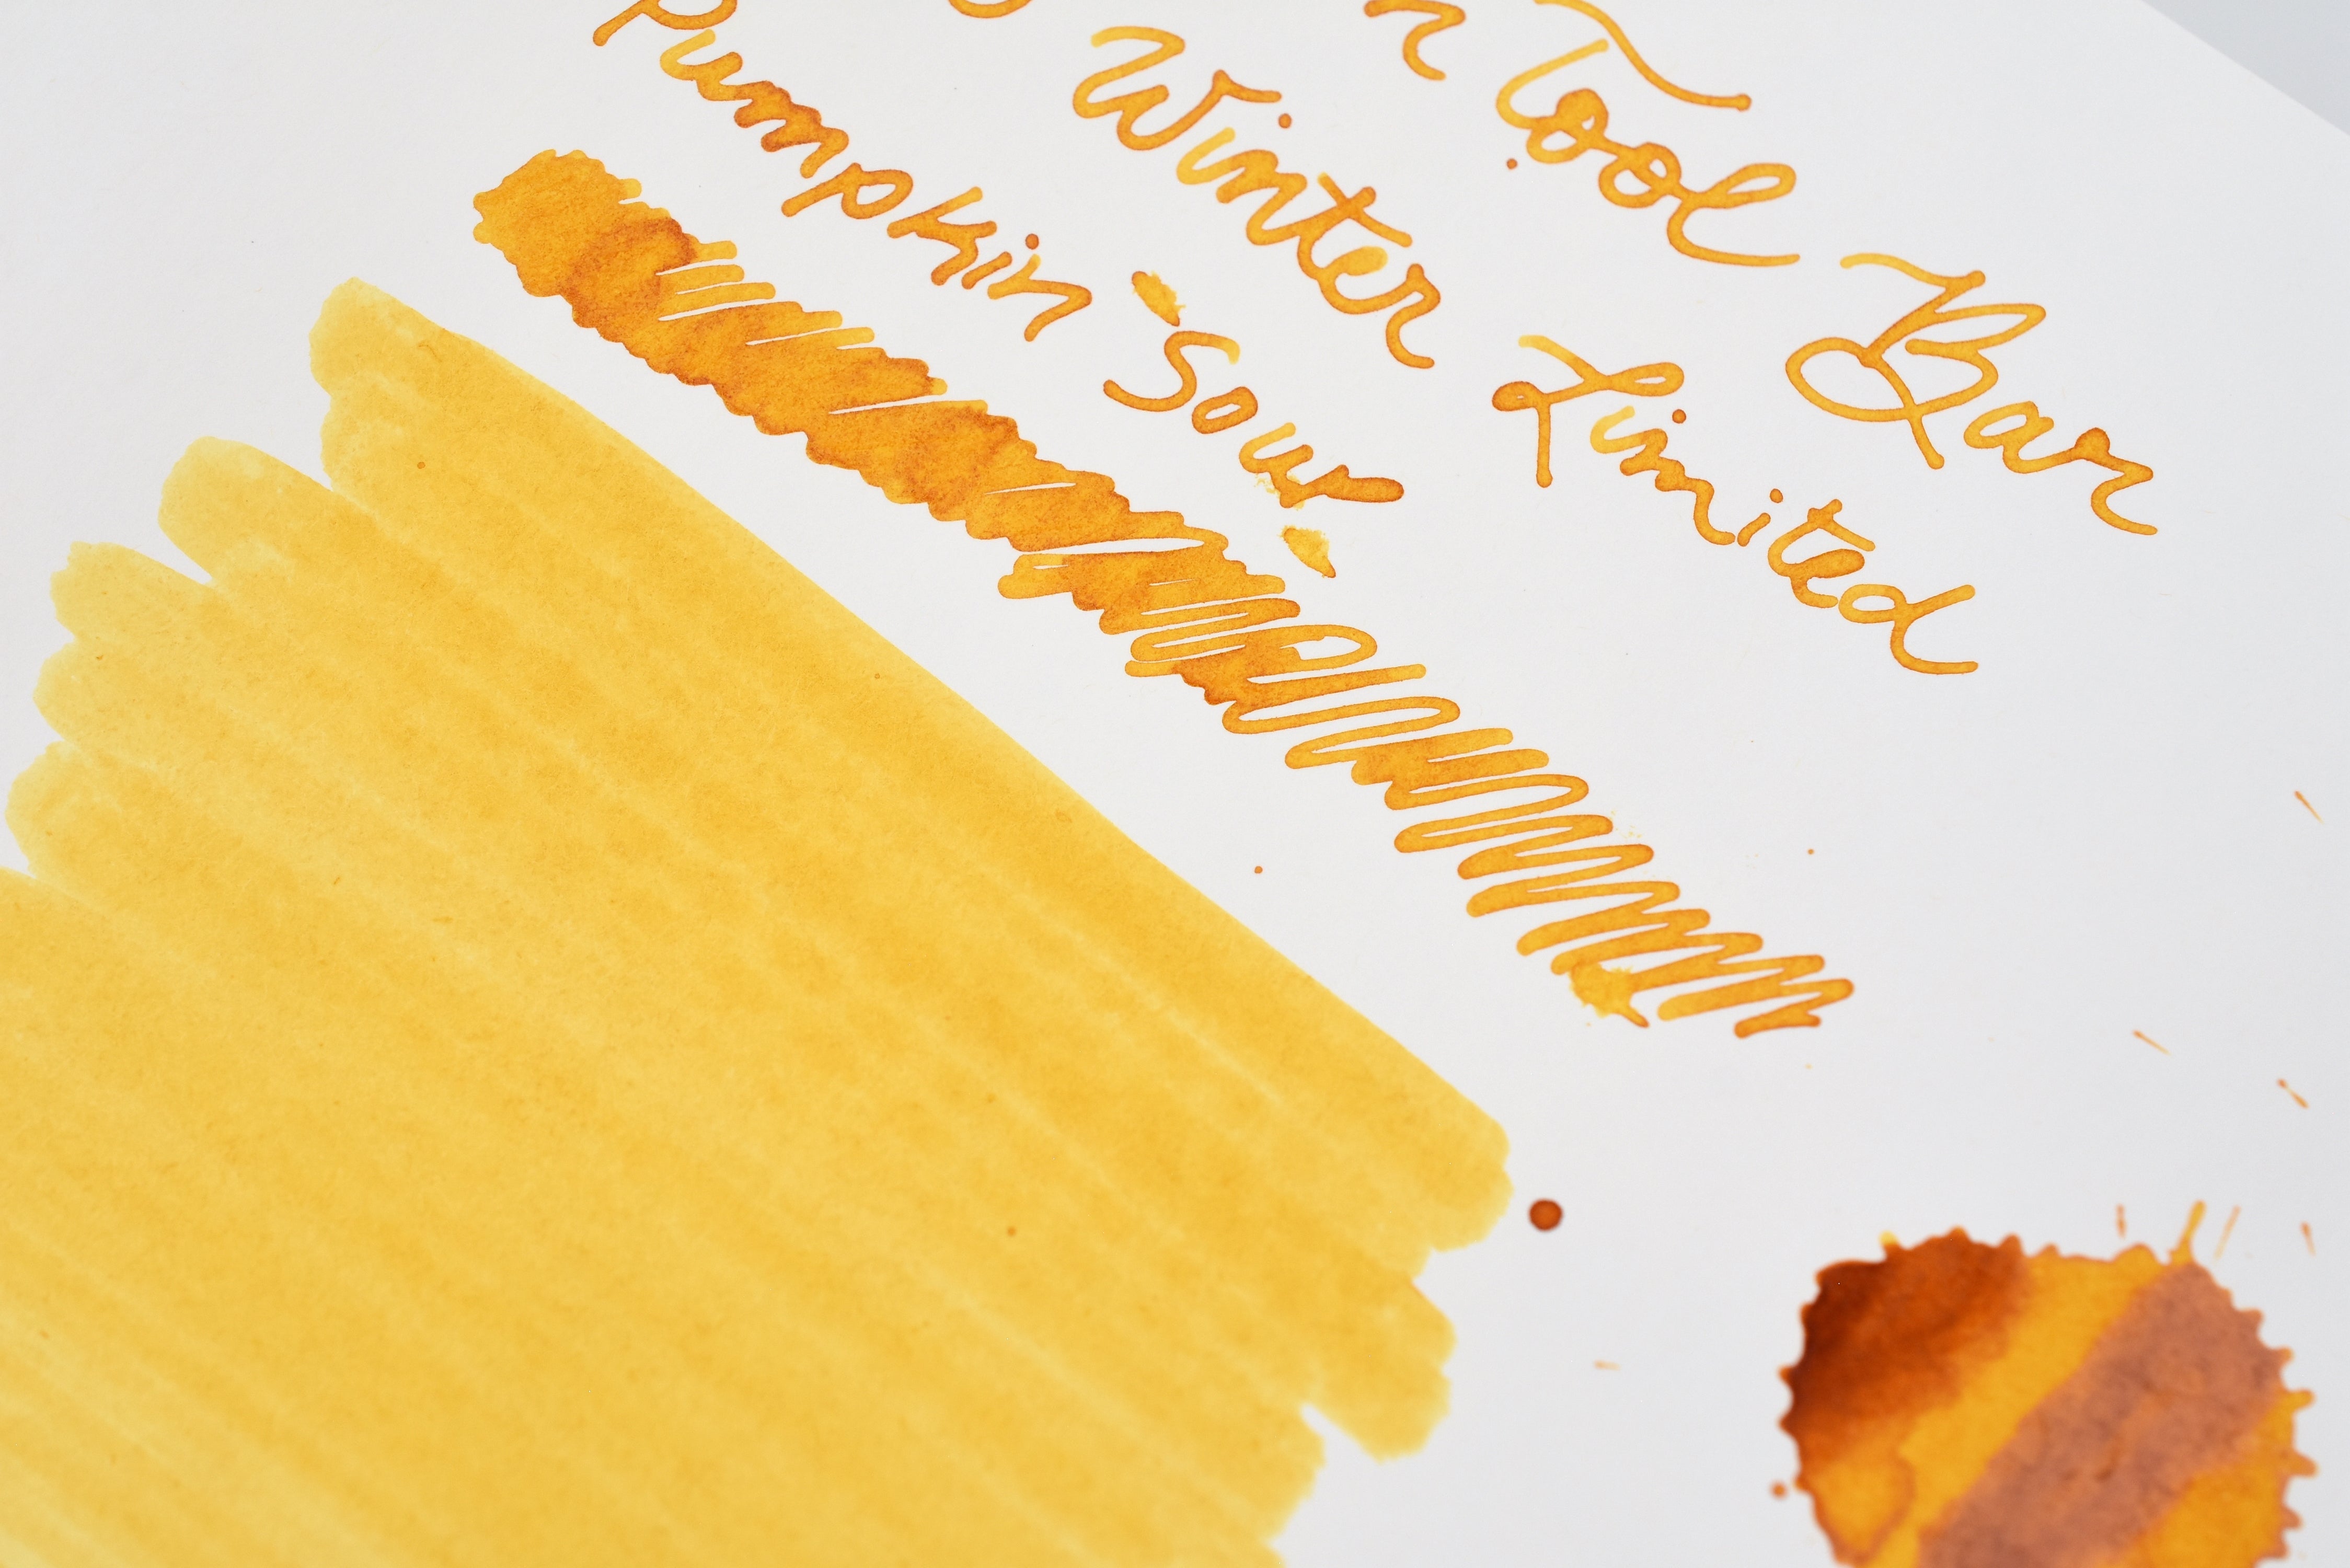 Tool Bar
Winter Limited
Pumpkin Sour